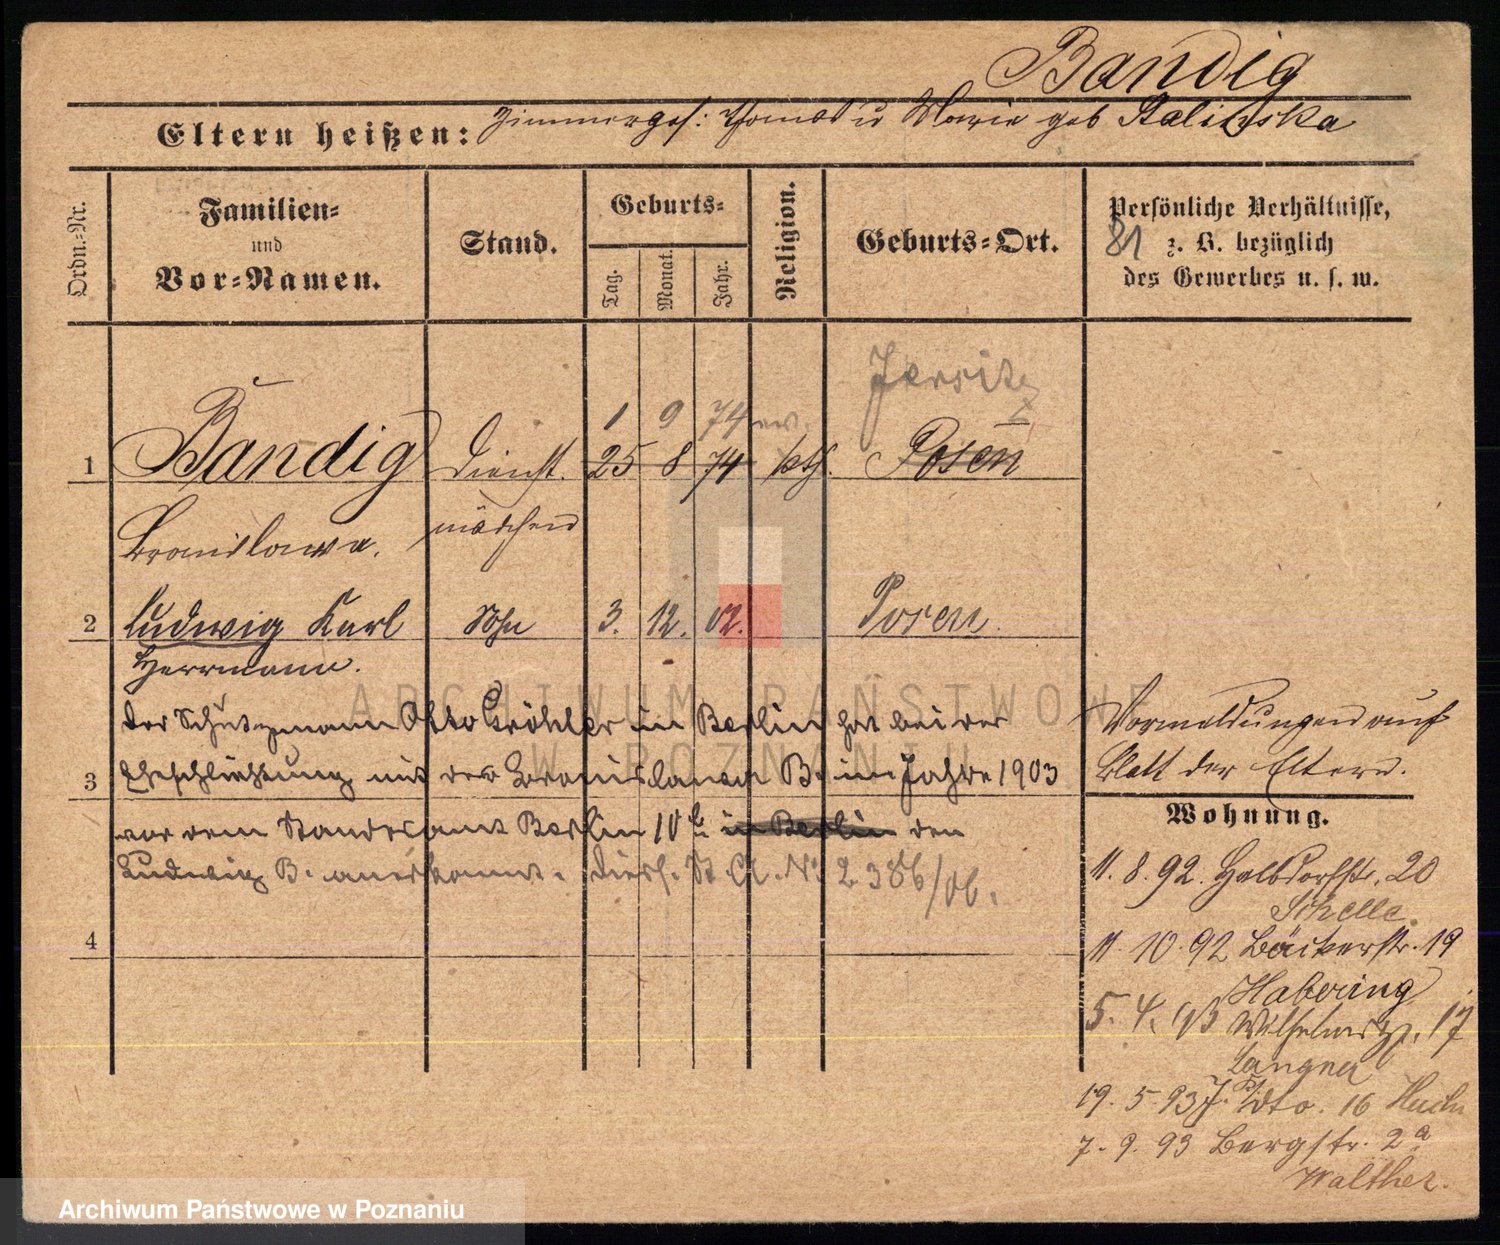 Bandig
Eltern heißen: Zimmerges: Thomas u Marie geb Stalinska
Ordn.=Nr.
Familien=
und
Vor=Namen.
Stand.
Geburts=
Tag.
Monat.
Jahr.
Religion.
Geburts=Ort.
Persönliche Verhältnisse,
81
z. B. bezüglich
des Gewerbes u. s. w.
Jersitz
1 9 74 ev.
1 Bandig Dienst. 25 8 74 kth. Posen
Bronislawa. mädchen
2 Ludwig Karl Sohn 3. 12. 02. Posen.
Herrmann.
Der Schutzmann Otto Gröhler in Berlin hat bei der
3 Eheschließung mit der Bronislawa B. im Jahre 1903
vor dem Standesamt Berlin 10 b in Berlin den
Ludwig B. anerkannt. Dies. St. A. No 2386/06.
4
Vormeldungen auf
Blatt der Eltern.
Wohnung.
11. 8. 92. Halbdorfstr. 20
Schelle.
11. 10. 92 Bäckerstr. 19
Habering
5. 4. 93 Wilhelmspl. 17
Langner
19. 5. 93 dto. 16
7. 9. 93 Bergstr. 2a
Walther.
ARCHIWUM PAŃSTWOWE
W POZNANIU
Archiwum Państwowe w Poznaniu